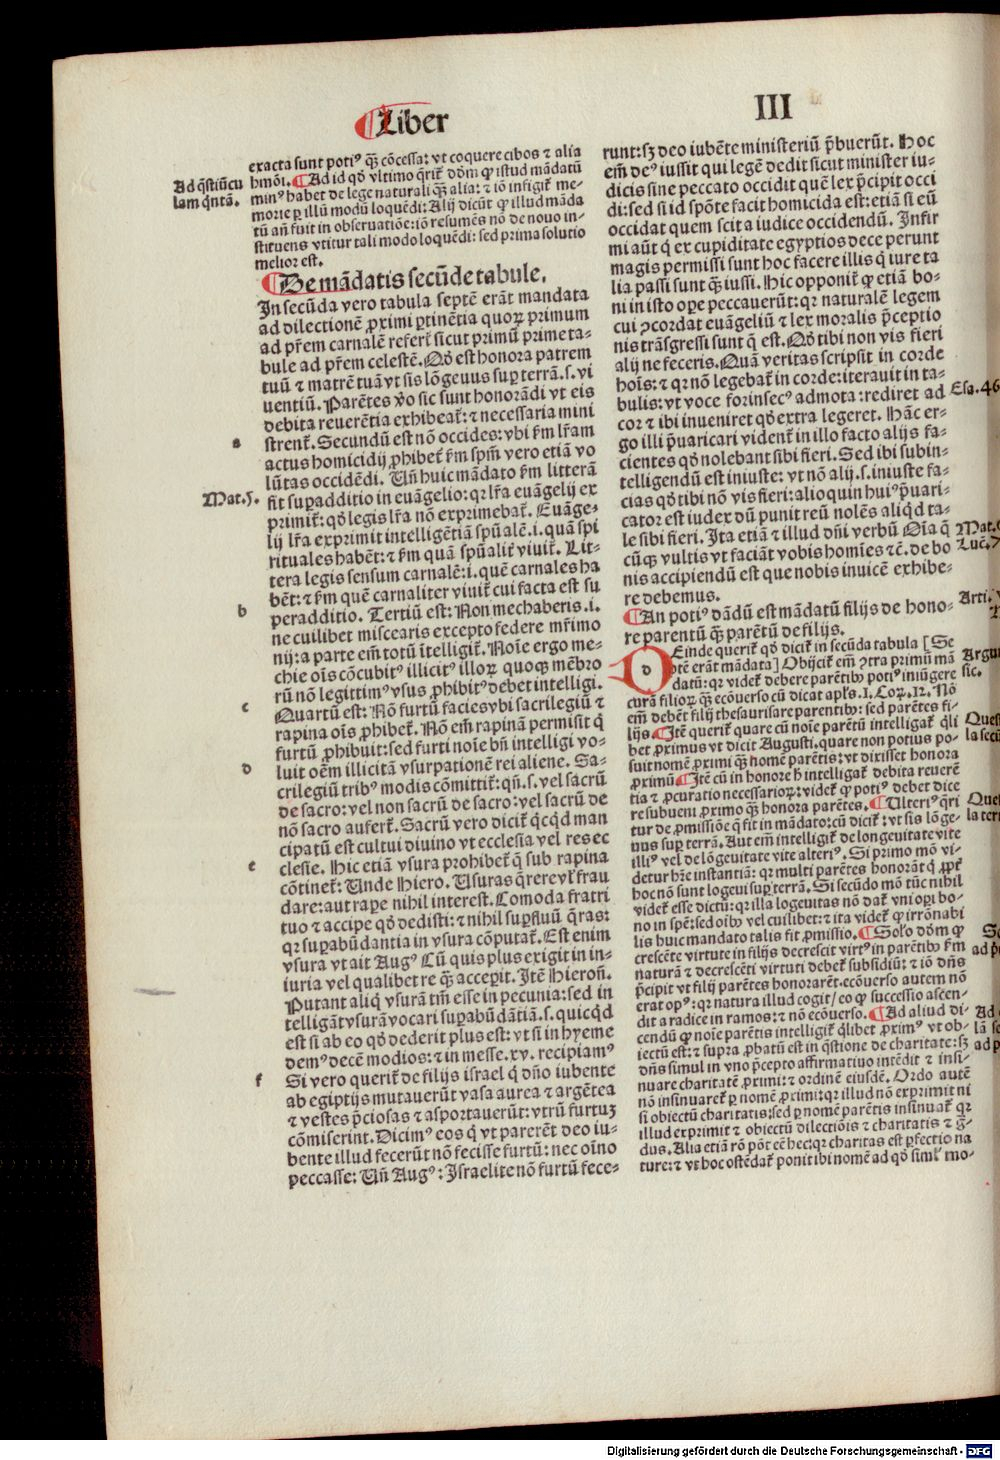 Liber
III
exacta sunt potiꝰ q̃ꝫ cõcessa: vt coquere cibos ⁊ alia
hmõi. Ad id qð vltimo q̃rit̃ dõm ꝙ istud mãdatũ
minꝰ habet de lege naturali q̃ꝫ alia: ⁊ iõ infigit̃ me-
morie ꝑ illũ modũ loquẽdi: Alij dicũt ꝙ illud mãda
tũ añ fuit in obseruatiõe: iõ resumẽs nõ de nouo in-
stituens vtitur tali modo loquẽdi: sed prima solutio
melior est.
Ad q̃stiũcu
lam q̃ntã.
De mãdatis secũde tabule.
In secũda vero tabula septẽ erãt mandata
ad dilectionẽ ꝓximi ꝑtinẽtia quoꝝ primum
ad pr̃em carnalẽ refert̃ sicut primũ prime ta-
bule ad pr̃em celestẽ. Qð est honora patrem
tuũ ⁊ matrẽ tuã vt sis lõgeuus suꝑ terrã. s. vi
uentiũ. Parẽtes v̓o sic sunt honorãdi vt eis
debita reuerẽtia exhibeat̃: ⁊ necessaria mini
strent̃. Secundũ est nõ occides: vbi ẜm lr̃am
actus homicidij ꝓhibet̃ ẜm sp̃m vero etiã vo
lũtas occidẽdi. Uñ huic mãdato ẜm litterã
fit suꝑadditio in euãgelio: qꝛ lr̃a euãgelij ex
primit̃: qð legis lr̃a nõ exprimebat̃. Euãge-
lij lr̃a exprimit intelligẽtiã spũalẽ. i. quã spi
rituales habẽt: ⁊ ẜm quã spũalit̃ viuit̃. Lit-
tera legis sensum carnalẽ: i. quẽ carnales ha
bẽt: ⁊ ẜm quẽ carnaliter viuit̃ cui facta est su
peradditio. Tertiũ est: Non mechaberis. i.
ne cuilibet miscearis excepto federe mr̃imo
nij: a parte em̃ totũ ĩtelligit̃. Noĩe ergo me-
chie oĩs cõcubitꝰ illicitꝰ illoꝝ quoqꝫ mẽbro
rũ nõ legittimꝰ vsus ꝓhibitꝰ debet intelligi.
Quartũ est: Nõ furtũ facies vbi sacrilegiũ ⁊
rapina oĩs ꝓhibet̃. Nõ em̃ rapinã permisit q̓
furtũ ꝓhibuit: sed furti noĩe bñ intelligi vo-
luit oẽm illicitã vsurpationẽ rei aliene. Sa-
crilegiũ tribꝰ modis cõmittit̃: qñ. s. vel sacrũ
de sacro: vel non sacrũ de sacro: vel sacrũ de
nõ sacro aufert̃. Sacrũ vero dicit̃ q̓cq̓d man
cipatũ est cultui diuino vt ecclesia vel res ec
clesie. Hic etiã vsura prohibet̃ q̃ sub rapina
cõtinet̃: Unde Hiero. Usuras q̃rere vl̓ frau
dare: aut raꝑe nihil interest. Comoda fratri
tuo ⁊ accipe qð dedisti: ⁊ nihil suꝑfluũ q̃ras:
qꝛ suꝑabũdantia in vsura cõputat̃. Est enim
vsura vt ait Augꝰ Cũ quis plus exigit in in-
iuria vel qualibet re q̃ꝫ acceꝑit. Itẽ Hieroñ.
Putant aliq̓ vsurã tm̃ esse in pecunia: sed in
telligãt vsurã vocari suꝑabũdãtiã. s. quicq̓d
est si ab eo qð dederit plus est: vt si in hyeme
demꝰ decẽ modios: ⁊ in messe. xv. recipiamꝰ
Si vero querit̃ de filijs israel q̓ dño iubente
ab egiptijs mutauerũt vasa aurea ⁊ argẽtea
⁊ vestes p̃ciosas ⁊ asportauerũt: vtrũ furtuꝫ
cõmiserint. Dicimꝰ eos q̓ vt parerẽt deo iu-
bente illud fecerũt nõ fecisse furtũ: nec oĩno
peccasse: Uñ Augꝰ: Israelite nõ furtũ fece-
a
Mat. 5.
b
c
d
e
f
runt: sꝫ deo iubẽte ministeriũ p̃buerũt. Hoc
em̃ deꝰ iussit qui legẽ dedit sicut minister iu-
dicis sine peccato occidit quẽ lex p̃cipit occi
di: sed si id spõte facit homicida est: etiã si eũ
occidat quem scit a iudice occidendũ. Infir
mi aũt q̓ ex cupiditate egyptios dece perunt
magis permissi sunt hoc facere illis q̓ iure ta
lia passi sunt q̃ꝫ iussi. Hic opponit̃ ꝙ etiã bo-
ni in isto oꝑe peccauerũt: qꝛ naturalẽ legem
cui ↄcordat euãgeliũ ⁊ lex moralis p̃ceptio
nis trãsgressi sunt q̃ est. Qð tibi non vis fieri
alij ne feceris. Quã veritas scripsit in corde
hoĩs: ⁊ qꝛ nõ legebat̃ in corde: iterauit in ta-
bulis: vt voce forinsecꝰ admota: rediret ad
cor ⁊ ibi inueniret qð extra legeret. Hãc er-
go illi p̃uaricari vident̃ in illo facto alijs fa-
cientes qð nolebant sibi fieri. Sed ibi subin-
telligendũ est iniuste: vt nõ alij. s. iniuste fa-
cias qð tibi nõ vis fieri: alioquin huiꝰ p̃uari-
cator est iudex dũ punit reũ nolẽs aliq̓d ta-
le sibi fieri. Ita etiã ⁊ illud dñi verbũ Oĩa q̃
cũqꝫ vultis vt faciãt vobis homĩes ⁊c̃. de bo
nis accipiendũ est que nobis inuicẽ exhibe-
re debemus.
An potiꝰ dãdũ est mãdatũ filijs de hono-
re parentũ q̃ꝫ parẽtũ de filijs.
d
Einde querit̃ qð dicit̃ in secũda tabula [Se
ptẽ erãt mãdata] Obijcit̃ em̃ ↄtra primũ mã
datũ: qꝛ videt̃ debere parẽtibꝫ potiꝰ iniũgere
curã filioꝝ q̃ꝫ ecõuerso cũ dicat apl̓s. I. Coꝝ. 12. Nõ
em̃ debẽt filij thesaurisare parentibꝫ: sed parẽtes fi-
lijs. Itẽ querit̃ quare cũ noĩe parẽtũ intelligat̃ q̓li
bet ꝓximus vt dicit Augusti. quare non potius po-
suit nomẽ ꝓximi q̃ꝫ nomẽ parẽtis: vt dixisset honora
ꝓximũ Itẽ cũ in honore h̓ intelligat̃ debita reuerẽ
tia ⁊ ꝓcuratio necessarioꝝ: videt̃ ꝙ potiꝰ debet dice
re subueni ꝓximo q̃ꝫ honora parẽtes. Ulteriꝰ q̃ri
tur de ꝓmissiõe q̃ fit in mãdato: cũ dicit̃: vt sis lõge-
uus suꝑ terrã. Aut em̃ intelligit̃ de longeuitate vite
illiꝰ vel de lõgeuitate vite alteriꝰ. Si primo mõ vi-
detur hr̃e instantiã: qꝛ multi parẽtes honorãt q̓ ꝓpt̃
hoc nõ sunt logeui suꝑ terrã. Si secũdo mõ tũc nihil
videt̃ esse dictũ: qꝛ illa logeuitas nõ dat̃ vni oꝑi bo-
no in spẽ: sed oibꝫ vel cuilibet: ⁊ ita videt̃ ꝙ irrõnabi
lis huic mandato talis fit ꝓmissio. Solo dõm ꝙ
crescẽte virtute in filijs decrescit virtꝰ in parẽtibꝫ ẜm
naturã ⁊ decrescẽti virtuti debet̃ subsidiũ: ⁊ iõ dñs
p̃cipit vt filij parẽtes honorarẽt. ecõuerso autem nõ
erat opꝰ: qꝛ natura illud cogit/ eo ꝙ successio ascen-
dit a radice in ramos: ⁊ nõ ecõuerso. Ad aliud di-
cendũ ꝙ noĩe parẽtis intelligit̃ q̓libet ꝓximꝰ vt ob-
iectũ est: ⁊ supra ꝓbatũ est in q̃stione de charitate: sꝫ
dñs simul in vno p̃cepto affirmatiuo intẽdit ⁊ insi-
nuare charitatẽ ꝓximi: ⁊ ordinẽ eiusdẽ. Ordo autẽ
nõ insinuaret̃ ꝑ nomẽ ꝓximi: qꝛ illud nõ exprimit ni
si obiectũ charitatis: sed ꝑ nomẽ parẽtis insinuat̃ qꝛ
illud exprimit ⁊ obiectũ dilectiõis ⁊ charitatis ⁊ g̃-
dus. Alia etiã rõ põt eẽ hec: qꝛ charitas est ꝑfectio na
ture: ⁊ vt hoc ostẽdat̃ ponit ibi nomẽ ad qð simul̓ mo-
Esa. 46
Mat.
Luc̃. 7
Arti.
Argu
sic.
Ques
la secũ
Ques
la ter
So
ad p̃
Ad
lã se
ad p
Digitalisierung gefördert durch die Deutsche Forschungsgemeinschaft - DFG